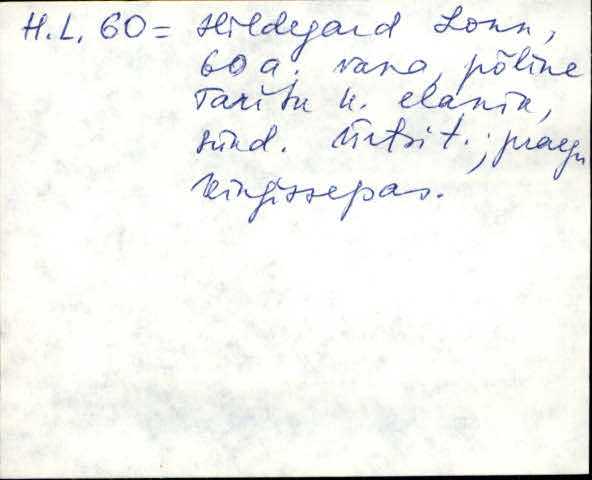 H.L. 60 = Hildegard Lonn,
60 a. vana, põline
Taritu k. elanik,
sünd. Ürtsi t.; praegu
Kingissepas.